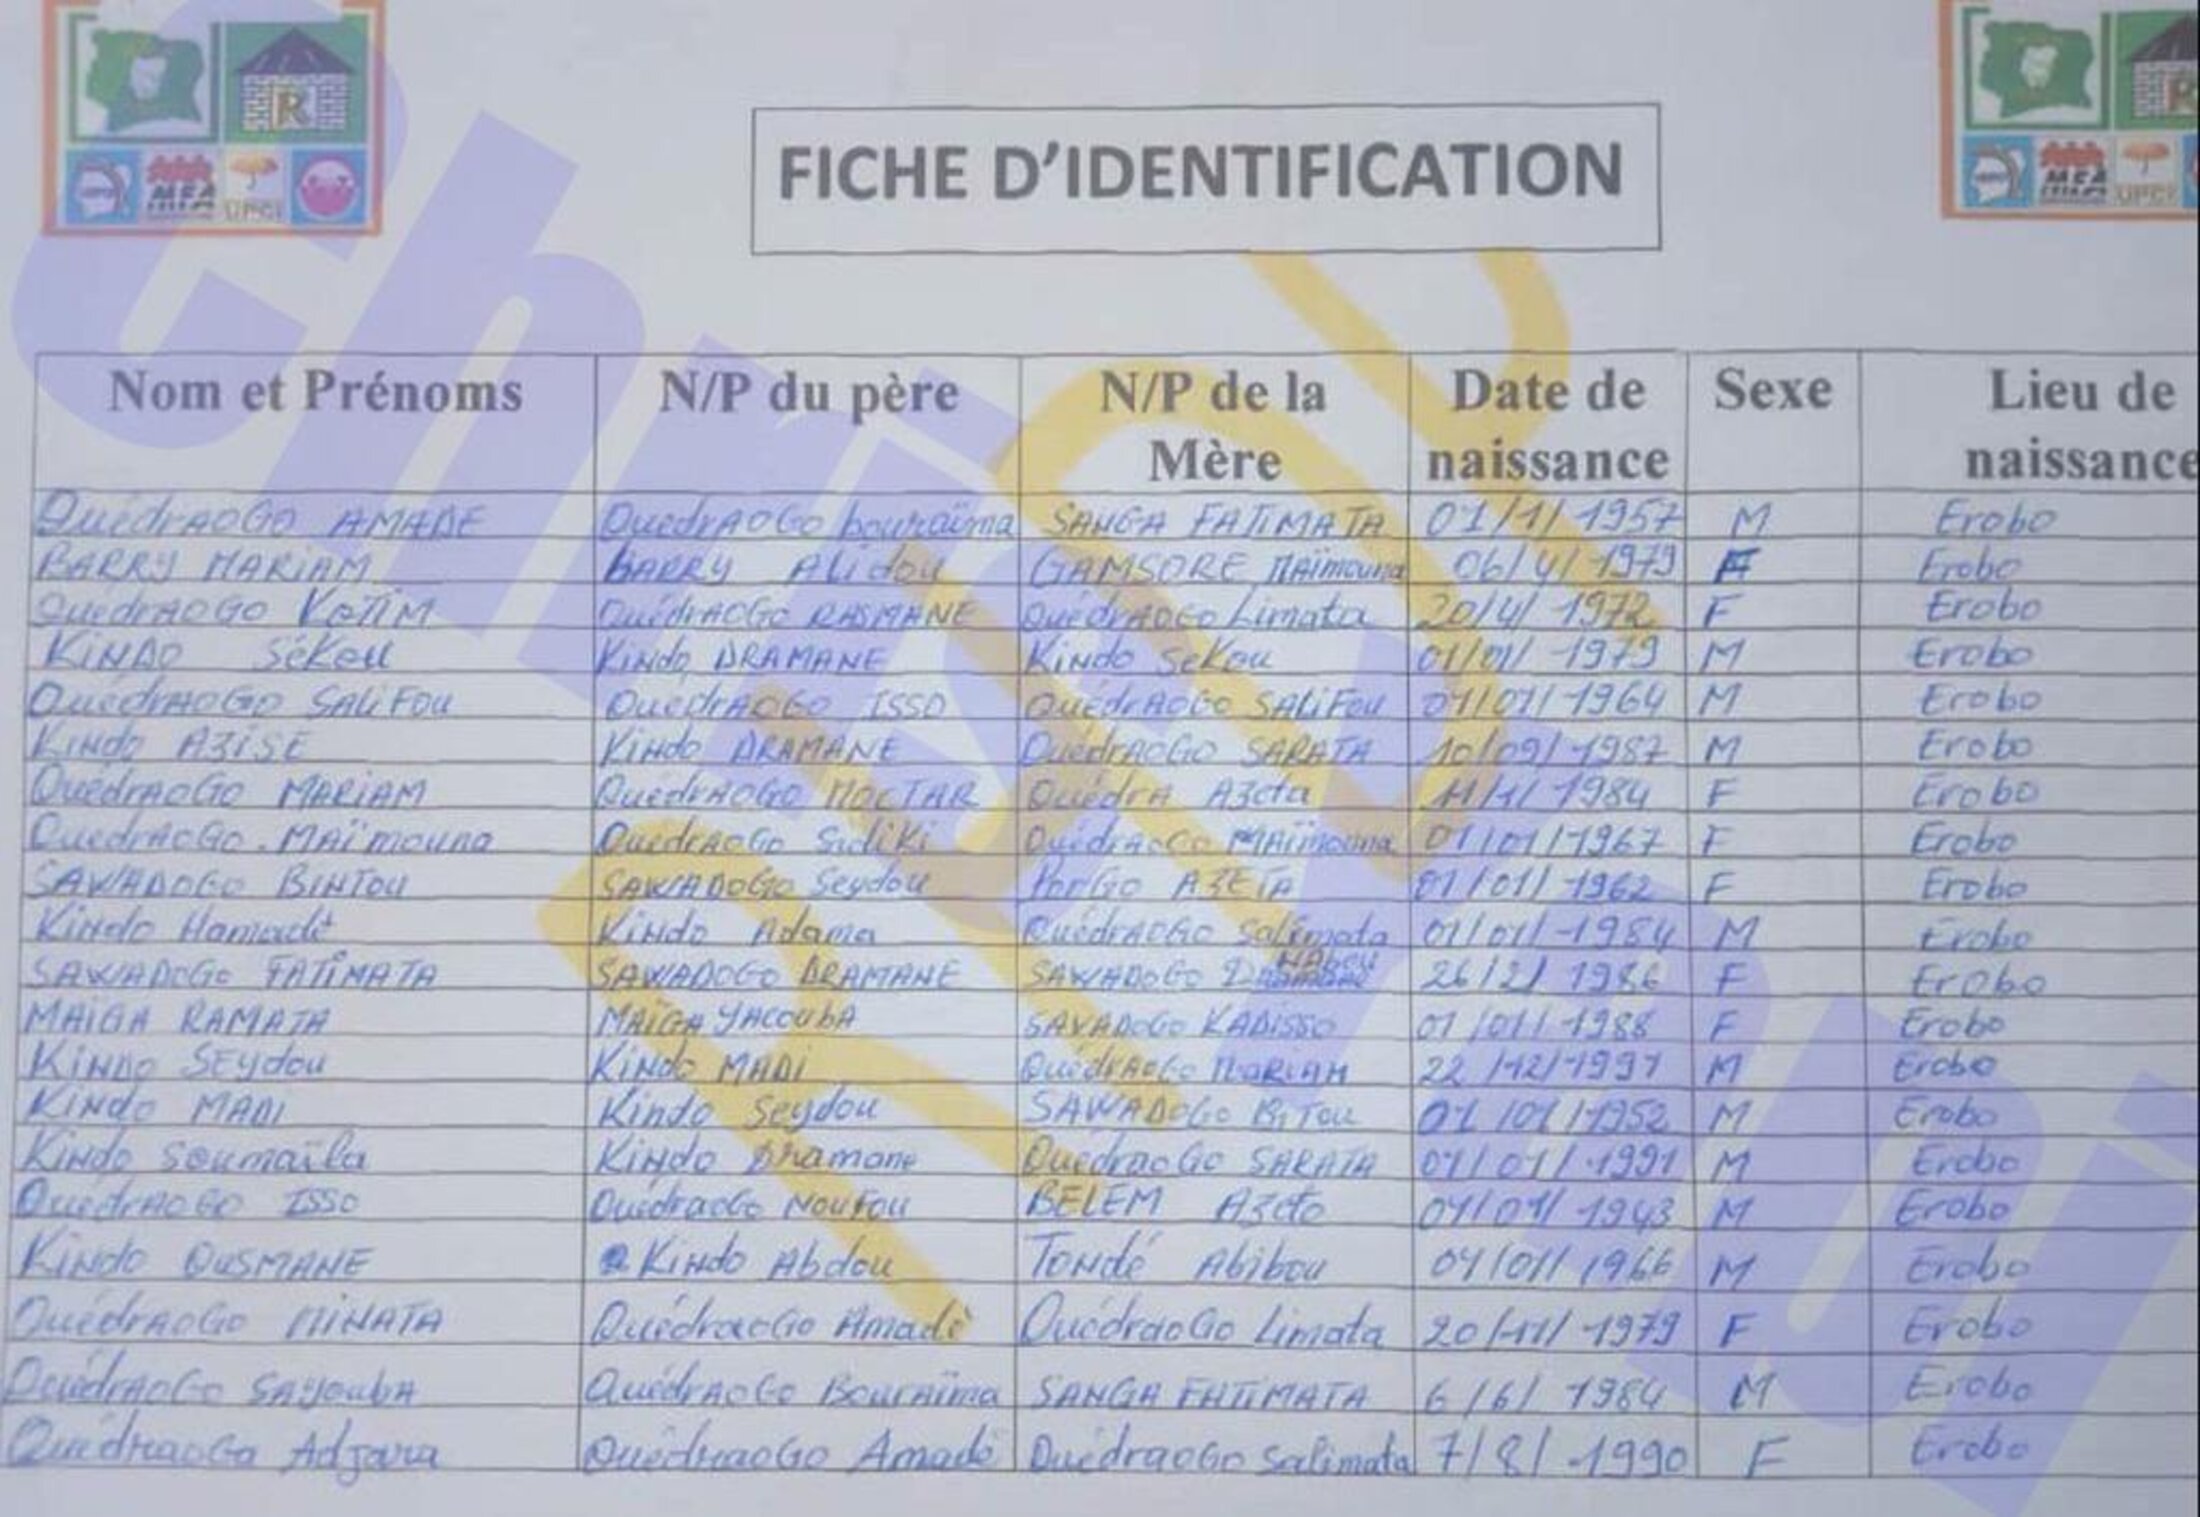 R
MFA
UPCI
R
MFA
UPCI
FICHE D'IDENTIFICATION
Nom et Prénoms N/P du père N/P de la Mère Date de naissance Sexe Lieu de naissance
OuédrAOGO AMADE OuedrAOGO bouraïma SANGA FATIMATA 01/1/1957 M Erobo
BARRY MARIAM BARRY Alidou GAMSORE Maïmouna 06/4/1979 F Erobo
OuedrAOGO KOTIM OuédrAOGO RASMANE OuédrAOGO Limata 20/4/1972 F Erobo
KINDO Sékou KINDO DRAMANE KINDO Sekou 01/01/1979 M Erobo
OuédrAOGO SALIFOU OuedrAOGO ISSO OuédrAOGO SALIFOU 01/01/1964 M Erobo
KINDO AZISE KINDO DRAMANE OuédrAOGO SARATA 10/09/1987 M Erobo
OuédrAOGO MARIAM OuedrAOGO MOCTAR Ouédra Azeta 11/1/1984 F Erobo
OuedrAOGO Maïmouna OuedrAOGO Sidiki OuédrAOGO Maïmouna 01/01/1967 F Erobo
SAWADOGO BINTOU SAWADOGO Seydou PorGO AZETA 01/01/1962 F Erobo
KINDO Hamadé KINDO Adama OuédrAOGO Salimata 01/01/1984 M Erobo
SAWADOGO FATIMATA SAWADOGO DRAMANE SAWADOGO 26/2/1986 F Erobo
MAIGA RAMATA MAÏGA YACOUBA SAVADOGO KADISSO 01/01/1988 F Erobo
KINDO SEYdou KINDO MADI OuédrAOGO MARIAM 22/12/1991 M Erobo
KINDO MADI KINDO Seydou SAWADOGO BiTou 01/01/1952 M Erobo
KINDO Soumaïla KINDO Dramane OuédraoGo SARATA 01/01/1991 M Erobo
OuedrAOGO ISSO OuédraoGo NOUFOU BELEM Azeto 01/01/1943 M Erobo
KINDO OUSMANE KINDO Abdou Tondé Abibou 01/01/1966 M Erobo
OuédrAOGO MINATA OuédraoGo Amadé OuédraoGo Limata 20/11/1979 F Erobo
OuédrAOGO SAYouba OuédrAOGO Bouraïma SANGA FATIMATA 6/6/1984 M Erobo
OuédraoGo Adjara OuédraoGo Amadé OuédraoGo Salimata 7/8/1990 F Erobo